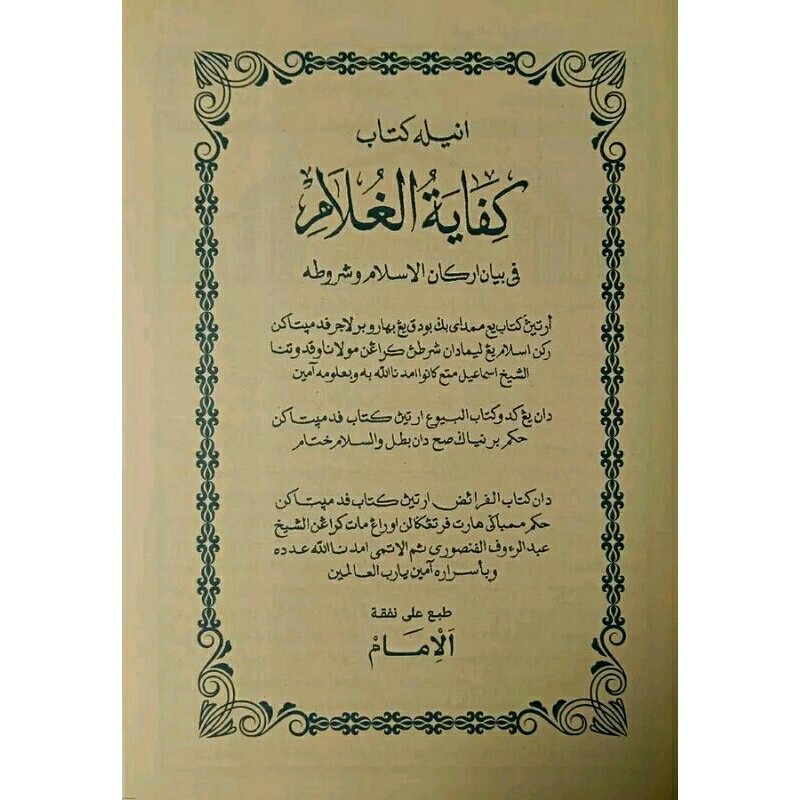 انيله كتاب
كِفَايَةُ الغُلَامِ
في بيان اركان الاسلام وشروطه
أرتيڽ كتاب يڠ ممداى بݢ بودق يڠ بهارو برلاجر فد مپتاكن
ركن اسلام يڠ ليما دان شرطڽ كراڠن مولانا وقدوتنا
الشيخ اسماعيل منڠكابوا امدنا الله به وبعلومه آمين
دان يڠ كدو كتاب البيوع ارتيڽ كتاب فد مپتاكن
حكم برنياݢ صح دان بطل والسلام ختام
دان كتاب الفرائض ارتيڽ كتاب فد مپتاكن
حكم ممباݢي هارت فرتڠݢالن اورڠ مات كراڠن الشيخ
عبد الرءوف الفنصوري ثم الاتهى امدنا الله عدده
وبأسراره آمين يارب العالمين
طبع على نفقة
اَلْإِمَامْ